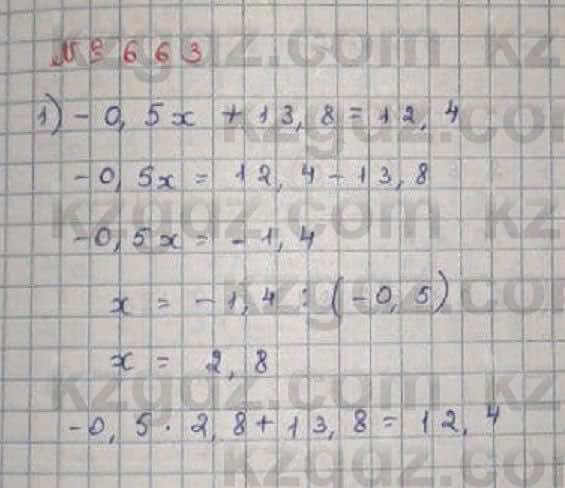 № 663
1) - 0,5x + 13,8 = 12,4
-0,5x = 12,4 - 13,8
-0,5x = -1,4
x = -1,4 : (-0,5)
x = 2,8
-0,5 · 2,8 + 13,8 = 12,4
kzgdz.com